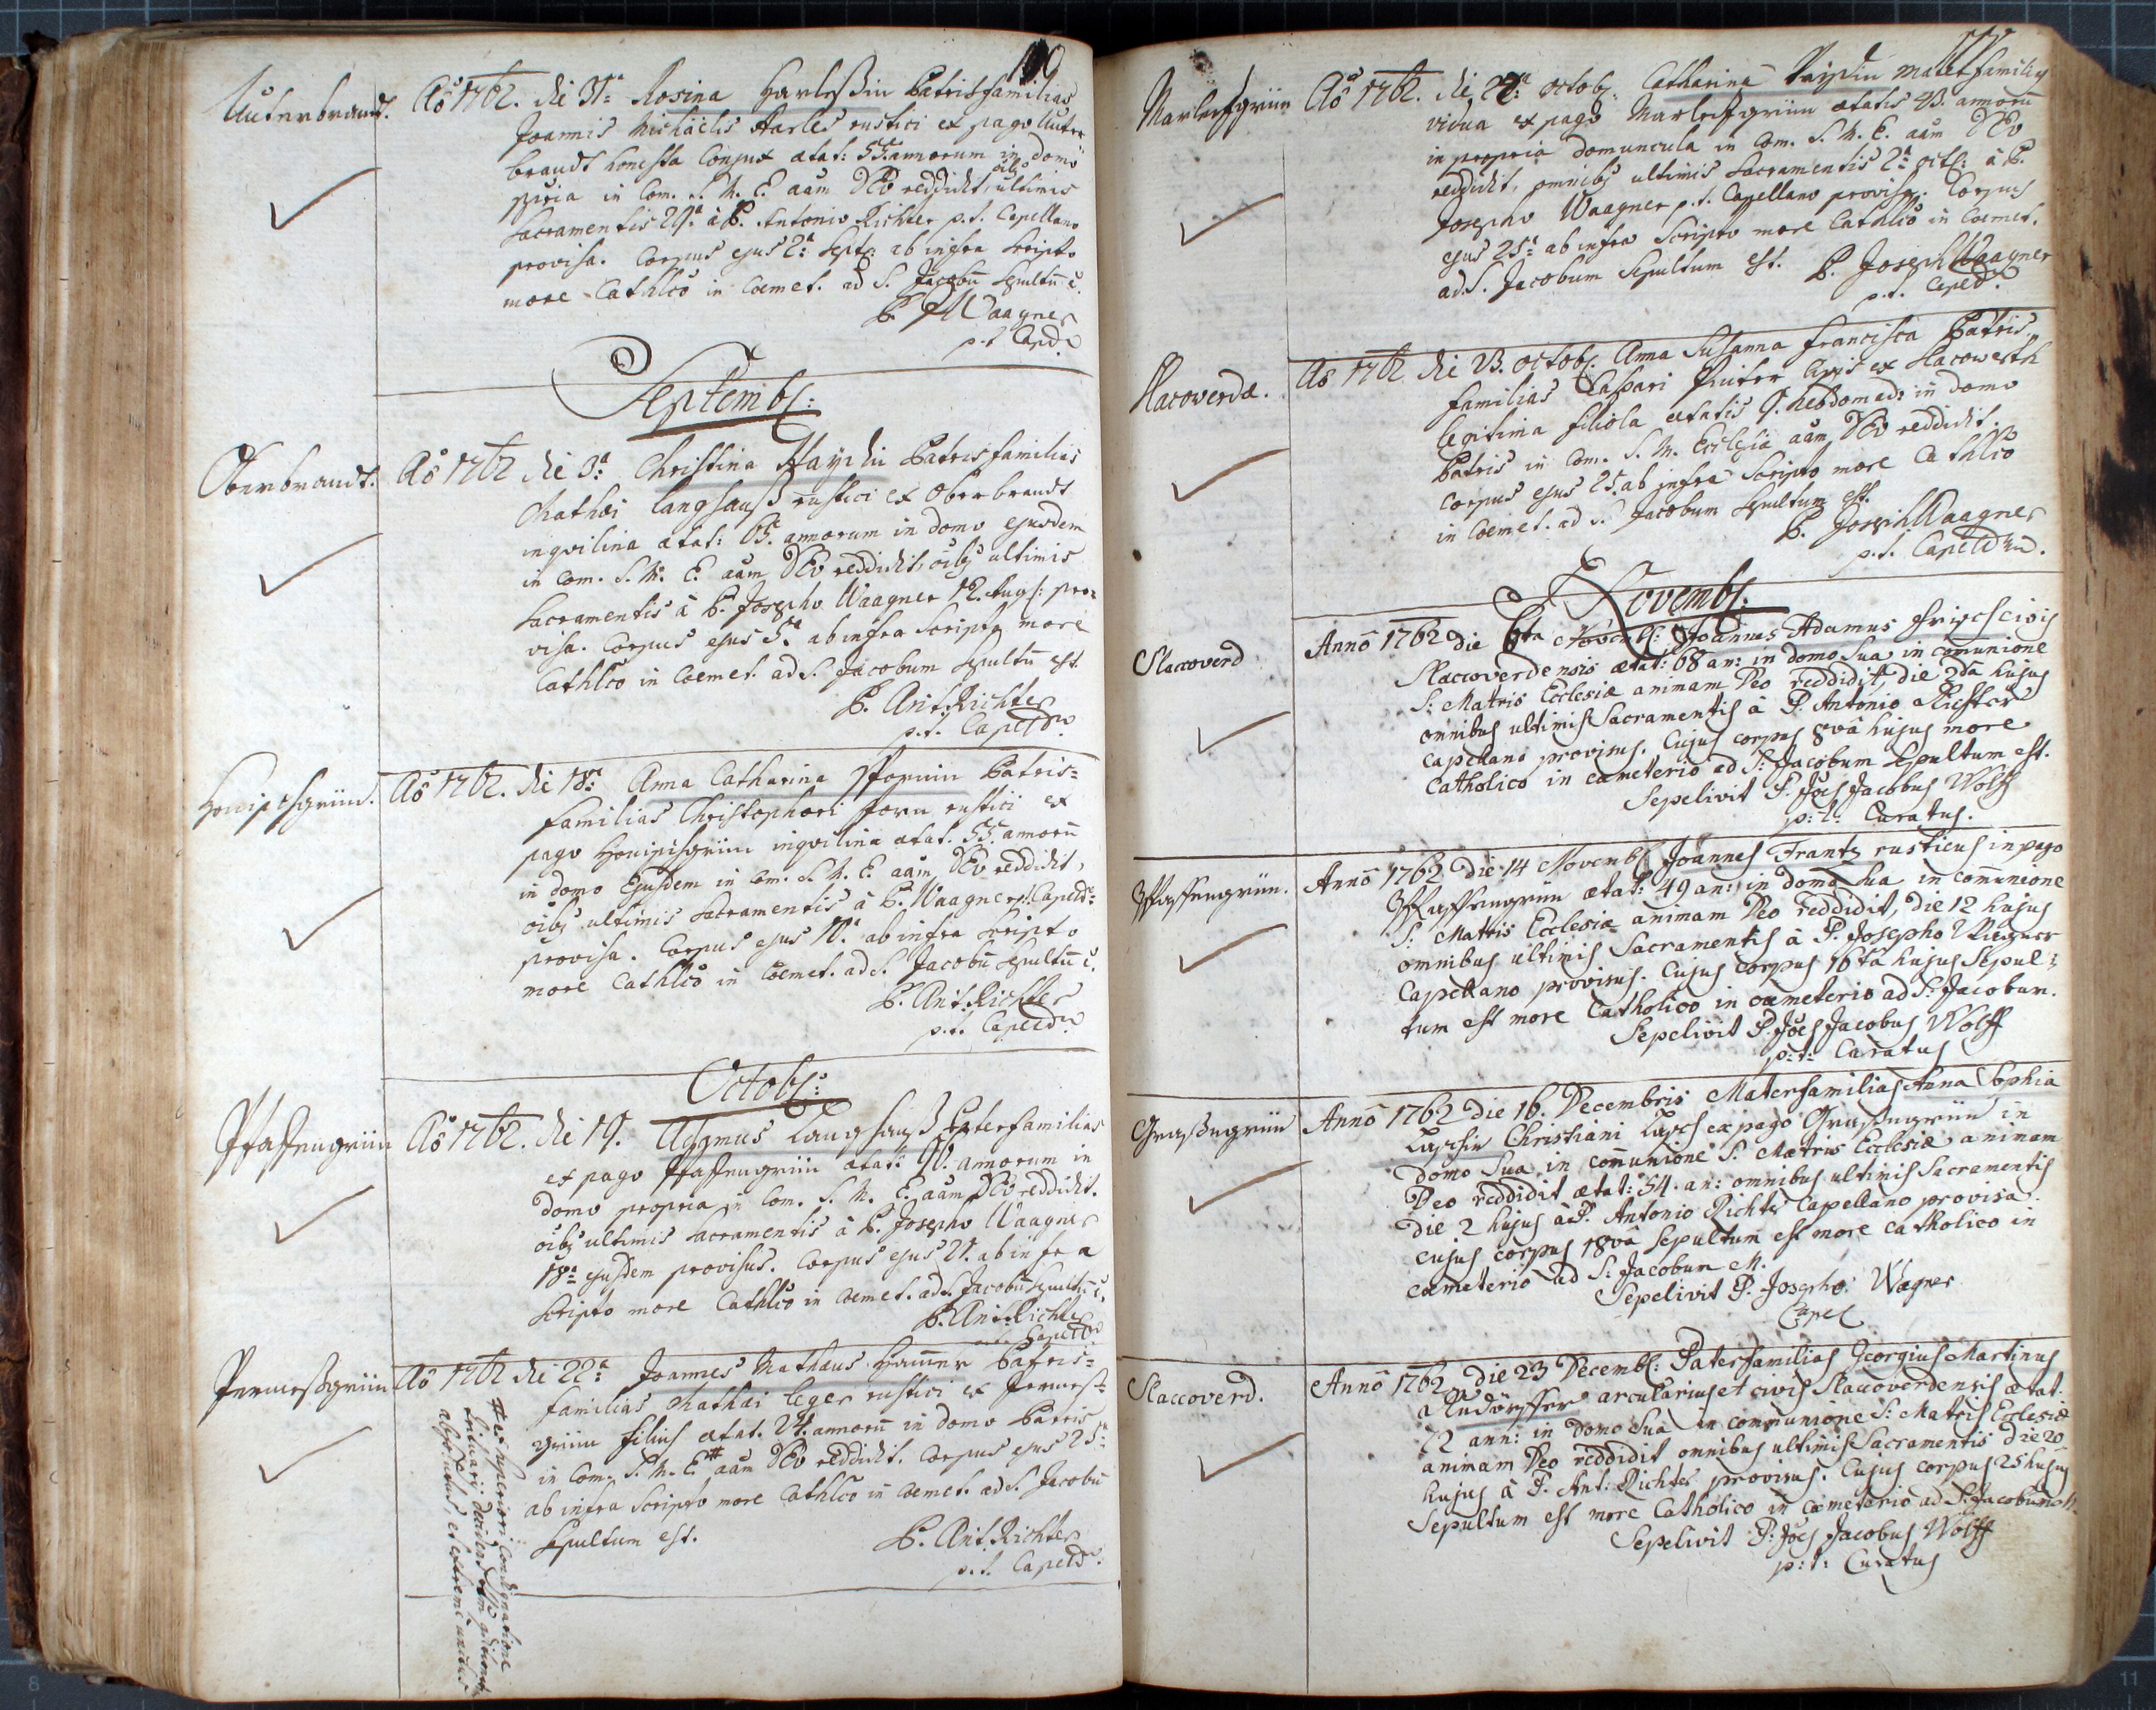 190
Unterbrandt.
Aõ 1762. die 31ᵃ Rosina Harleßin Patrisfamilias
Joannis Michaëlis Harles rustici ex pago Unter
brandt honesta Conjux ætat: 55. annorum in domo
ppria in Com. S. M. E. aãm DEo reddidit, oïbꝫ ultimis
Sacramentis 29ᵃ à P. Antonio Richter p.t. Capellano
provisa. Corpus ejus 2ᵃ Septꝭ: ab infra Scripto
more Cathlco in Coemet. ad S. Jacobũ Sepultũ ẽ.
P. J Waagner
p.t. Capel.
Septembꝭ:
Oberbrandt.
Aõ 1762 die 3ᵃ Christina Haydin Patrisfamilias
Mathæi Langhauß rustici ex Oberbrandt
inqvilina ætat: 65. annorum in domo ejusdem
in Com. S. M. E. aãm DEo reddidit, oïbꝫ ultimis
Sacramentis à P. Josepho Waagner 12. Augꝭ: pro=
visa. Corpus ejus 5ᵃ ab infra Scripto more
Cathlco in Coemet. ad S. Jacobum Sepultũ est.
P. Ant. Richter
p.t. Capeld.
Aõ 1762. die 18ᵃ Anna Catharina Fornin Patris=
familias Christophori Forn rustici ex
in domo Ejusdem in Com. S. M. E. aãm DEo reddidit,
oïbꝫ ultimis Sacramentis à P. Waagner p.t. Capeld:
provisa. Corpus ejus ab infra Scripto
more Cathlco in Coemet. ad S. Jacobũ Sepultũ ẽ.
P. Ant. Richter
p.t. Capeld.
Octobꝭ:
Pfaffengrün
Aõ 1762. die 19. Langhauß Paterfamilias
ex pago Pfaffengrün ætat: annorum in
domo propria in Com. S. M. E. aãm DEo reddidit.
oïbꝫ ultimis Sacramentis à P. Josepho Waagner
18ᵃ ejusdem provisus. Corpus ejus 21. ab infra
Scripto more Cathlco in Coemet. ad S. Jacobũ Sepultũ ẽ.
P. Ant. Richter
Capeld.
Permeßgrün
Aõ 1762 die 22ᵃ Joannes Mathæus Hamer Patris=
familias Mathæi Leger rustici ex Permeß=
grün filius ætat. 24. annorũ in domo Patris
in Com. S. M. E. # aãm DEo reddidit. Corpus ejus 25ᵃ
ab infra Scripto more Cathlco in Coemet. ad S. Jacobũ
Sepultum est.
P. Ant. Richter
p.t. Capeld.
# ex superiori
absolutus, et extremè unctus
Marlesgrün
Aõ 1762. die 22ᵃ Octobꝭ. Catharina Materfamilias
vidua ex pago Marlesgrün ætatis 43. annorũ
in propria domuncula in Com. S. M. E. aãm DEo
reddidit, omnibꝫ ultimis Sacramentis 2ᵃ Octꝭ: à P.
Josepho Waagner p.t. Capellano provisa. Corpus
ejus 25ᵃ ab infra Scripto more Cathlco in Coemet.
ad S. Jacobum Sepultum est.
P. Joseph Waagner
p.t. Capeld.
Slacoverdæ.
Aõ 1762 die 23. Octobꝭ. Anna Susanna Francisca Patris
familias Caspari Civis ex Slacowerth
legitima filiola ætatis 9. hebdomad: in domo
Patris in Com. S. M. Ecclesiæ aãm DEo reddidit.
Corpus ejus 25. ab infra Scripto more Cathlco
in Coemet. ad S. Jacobum Sepultum est.
P. Joseph Waagner
p.t. Capeld.
Novembꝭ:
Slaccoverd
Anno 1762 die 6ta Novembꝭ: Joannes Adamus civis
Slaccoverdensis ætat: 68 an: in domo Sua in comunione
S: Matris Ecclesiæ animam Deo reddidit, die 2da hujus
omnibus ultimis Sacramentis à P. Antonio Richter
capellano provisus. Cujus corpus 8va hujus more
Catholico in cæmeterio ad S: Jacobum Sepultum est.
Sepelivit P. Joês Jacobus Wolff
p:t: Curatus.
Pfaffengrün.
Anno 1762 Die 14 Novembꝭ Joannes Frantz rusticus in pago
Pfaffengrün ætat: 49 an: in domo sua in communione
S: Matris Ecclesiæ animam Deo reddidit, die 12 hujus
omnibus ultimis Sacramentis à P. Josepho Wagner
Capellano provisus. Cujus corpus 16ta hujus Sepul=
tum est more Catholico in cæmeterio ad S: Jacobum.
Sepelivit P. Joês Jacobus Wolff
p:t: Curatus
Graßngrün
Anno 1762 Die 16. Decembris Materfamilias Anna Sophia
Lapschin Christiani Lapsch ex pago Graßngrün in
domo Sua in communione S: Matris Ecclesiæ animam
Deo reddidit ætat: 54. an: omnibus ultimis Sacramentis
die 2 hujus à P. Antonio Richter Capellano provisa.
cujus corpus 18va Sepultum est more catholico in
cæmeterio ad S: Jacobum M.
Sepelivit P. Josepho: Wagner
Capel
Slaccoverd.
Anno 1762 Die 23 Decembꝭ: Paterfamilias Georgius Martinus
arcularius et civis Slaccoverdensis ætat.
72 ann: in domo Sua in communione S: Matris Ecclesiæ
animam Deo reddidit omnibus ultimis Sacramentis Die 20
hujus à P. Ant: Richter provisus. Cujus corpus 25 hujus
Sepultum est more Catholico in cæmeterio ad S: Jacobum M.
Sepelivit P. Joês Jacobus Wolff
p:t: Curatus
8
11